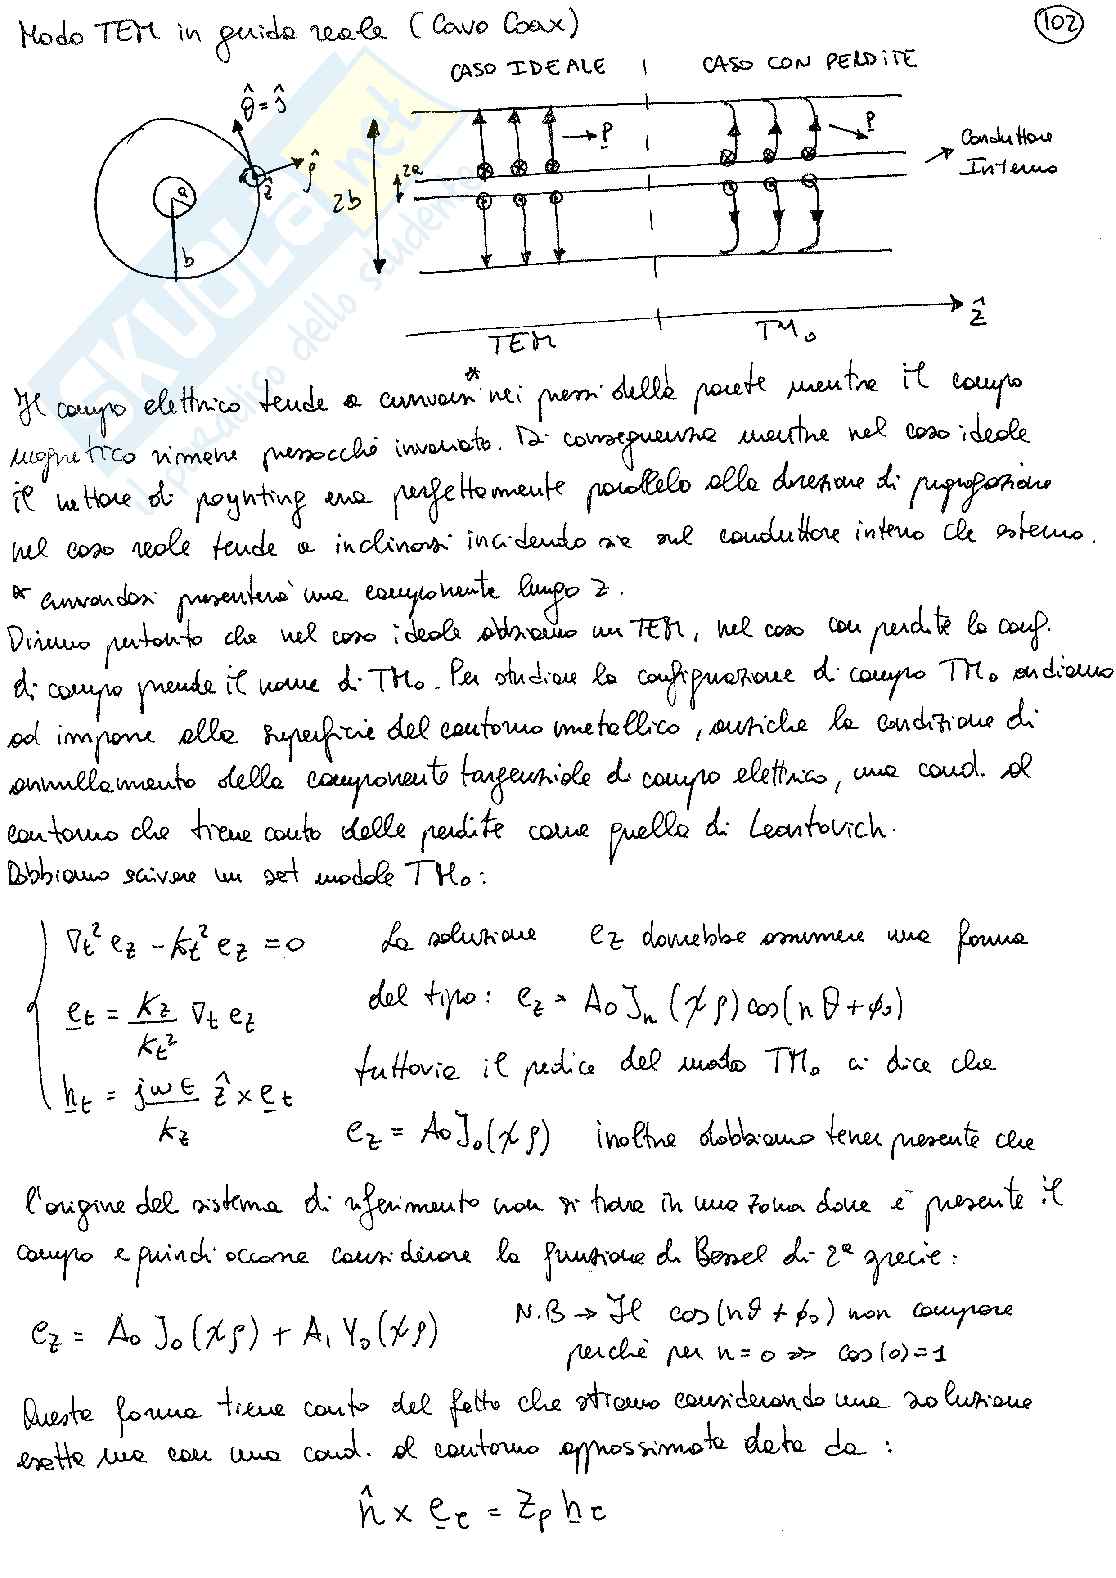 Modo TEM in guida reale (Cavo Coax)
102
CASO IDEALE | CASO CON PERDITE
θ̂ = ŝ
ρ̂
ẑ
a
b
2b
2a
P
P
Conduttore
Interno
TEM
TM₀
ẑ
Il campo elettrico tende a curvarsi* nei pressi della parete mentre il campo
magnetico rimane pressocché invariato. Di conseguenza mentre nel caso ideale
il vettore di poynting era perfettamente parallelo alla direzione di propagazione
nel caso reale tende a inclinarsi incidendo sia sul conduttore interno che esterno.
* curvandosi presenterà una componente lungo z.
Diremo pertanto che nel caso ideale abbiamo un TEM, nel caso con perdite la conf.
di campo prende il nome di TM₀. Per studiare la configurazione di campo TM₀ andiamo
ad imporre alla superficie del contorno metallico, anziché la condizione di
annullamento della componente tangenziale di campo elettrico, una cond. al
contorno che tiene conto delle perdite come quella di Leontovich.
Dobbiamo scrivere un set modale TM₀:
∇t² ez - kt² ez = 0
La soluzione ez dovrebbe assumere una forma
del tipo: ez = A₀ Jn (χρ) cos(nθ + φ₀)
et = kz/kt² ∇t ez
tuttavia il pedice del modo TM₀ ci dice che
ht = jωε/kz ẑ × et
ez = A₀ J₀(χρ) inoltre dobbiamo tener presente che
l'origine del sistema di riferimento non si trova in una zona dove è presente il
campo e quindi occorre considerare la funzione di Bessel di 2ª specie:
ez = A₀ J₀(χρ) + A₁ Y₀(χρ)
N.B → Il cos(nθ + φ₀) non compare
perchè per n=0 ⇒ cos(0)=1
Questa forma tiene conto del fatto che stiamo considerando una soluzione
esatta ma con una cond. al contorno approssimata data da:
n̂ × eτ = Zp hτ
SKUOLA.net
il paradiso dello studente